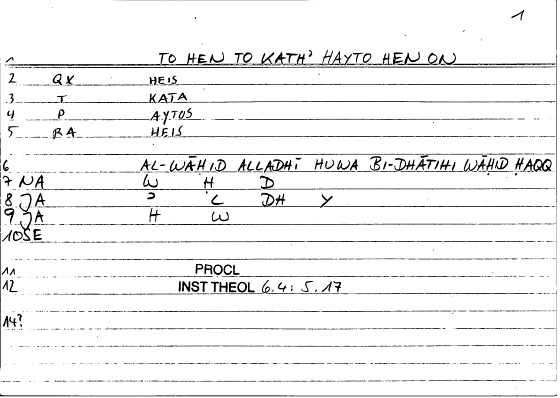 1
1 TO HEN TO KATH' HAYTO HEN ON
2 QX HEIS
3 T KATA
4 P AYTOS
5 RA HEIS
6 AL-WĀḤID ALLADHĪ HUWA BI-DHĀTIHI WĀḤID ḤAQQ
7 NA W Ḥ D
8 JA ʾ L DH Y
9 JA H W
10 SE
11 PROCL
12 INST THEOL 6.4: 5.17
14?